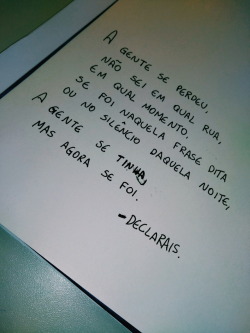 A GENTE SE PERDEU,
NÃO SEI EM QUAL RUA,
EM QUAL MOMENTO.
SE FOI NAQUELA FRASE DITA
OU NO SILÊNCIO DAQUELA NOITE,
A GENTE SE TINHA,
MAS AGORA SE FOI.
-DECLARAIS.